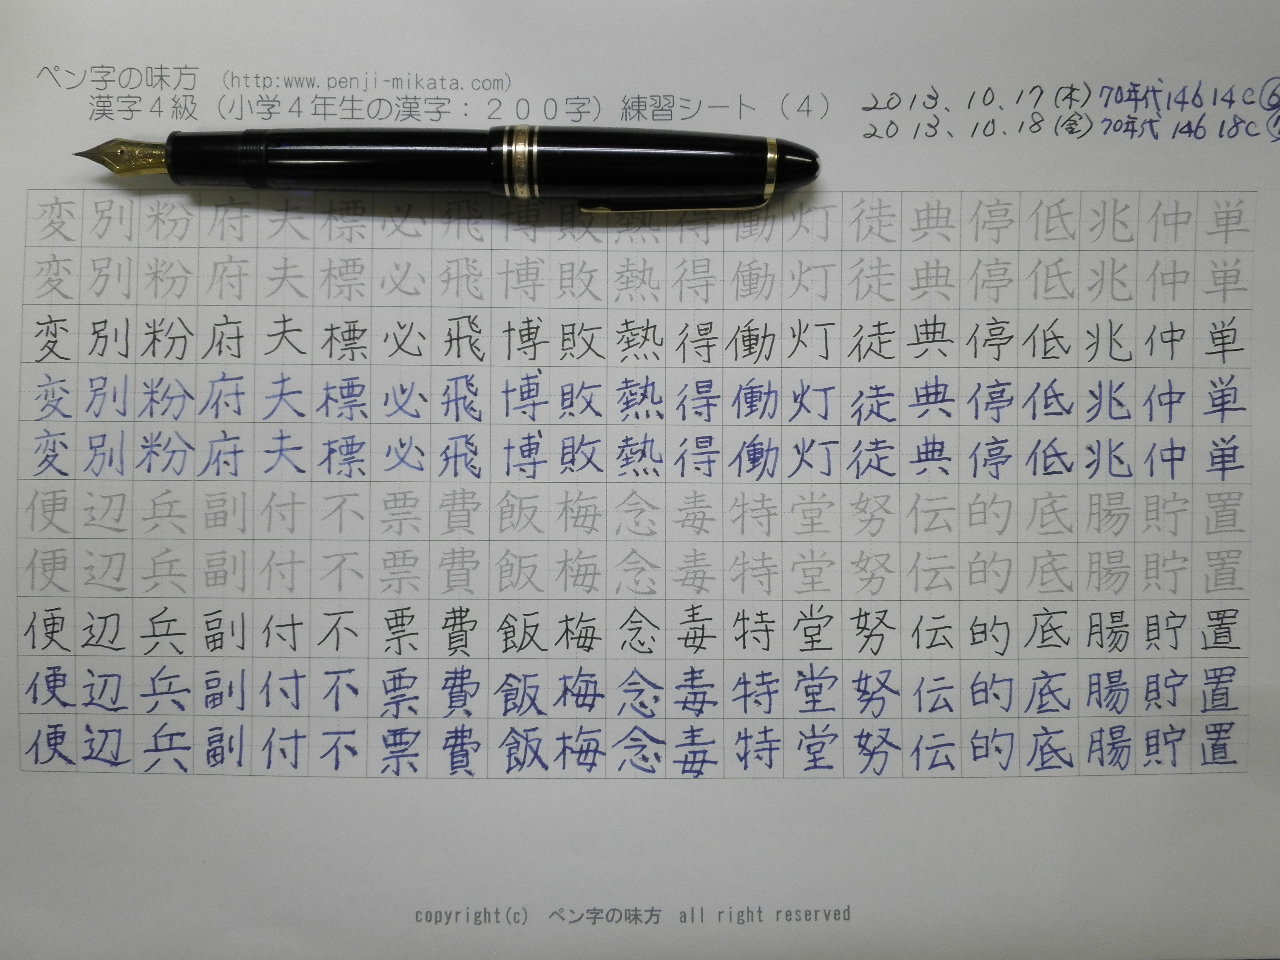 ペン字の味方 (http:www.penji-mikata.com)
漢字４級（小学４年生の漢字：２００字）練習シート（４）
2013.10.17(木) 70年代 146 14C
2013.10.18(金) 70年代 146 18C
変別粉府夫標必飛博敗熱得働灯徒典停低兆仲単
変別粉府夫標必飛博敗熱得働灯徒典停低兆仲単
変別粉府夫標必飛博敗熱得働灯徒典停低兆仲単
変別粉府夫標必飛博敗熱得働灯徒典停低兆仲単
変別粉府夫標必飛博敗熱得働灯徒典停低兆仲単
便辺兵副付不票費飯梅念毒特堂努伝的底腸貯置
便辺兵副付不票費飯梅念毒特堂努伝的底腸貯置
便辺兵副付不票費飯梅念毒特堂努伝的底腸貯置
便辺兵副付不票費飯梅念毒特堂努伝的底腸貯置
便辺兵副付不票費飯梅念毒特堂努伝的底腸貯置
copyright(c) ペン字の味方 all right reserved